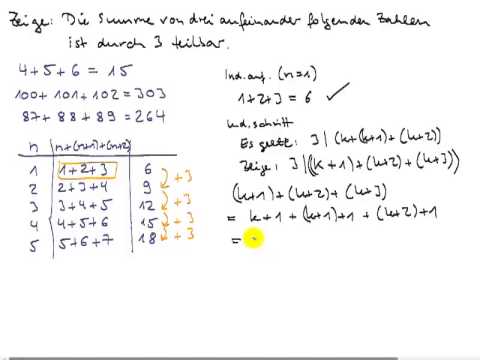 Zeige: Die Summe von drei aufeinander folgenden Zahlen
ist durch 3 teilbar.
4+5+6 = 15
100+101+102=303
87+88+89=264
n | n+(n+1)+(n+2)
1 | 1+2+3 | 6
2 | 2+3+4 | 9
3 | 3+4+5 | 12
4 | 4+5+6 | 15
5 | 5+6+7 | 18
+3
+3
+3
+3
Ind. anf. (n=1)
1+2+3 = 6 ✓
Ind. schritt
Es gelte: 3 | (k+(k+1)+(k+2))
Zeige: 3 | ((k+1)+(k+2)+(k+3))
(k+1)+(k+2)+(k+3)
= k+1+(k+1)+1+(k+2)+1
=